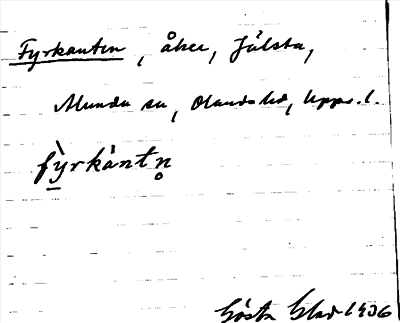 Fyrkanten, åker, Jälsta,
Munda sn, Olands hd, Upps. l.
fỳrkántn̥
Gösta Blad 1936